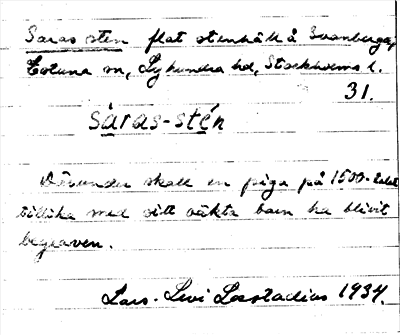 Saras sten flat stenhäll å Svanberga,
Estuna sn, Lyhundra hd, Stockholms l.
31.
sàras-stén
Därunder skall en piga på 1500-talet
tillika med sitt oäkta barn ha blivit
begraven.
Lars-Levi Læstadius 1934.